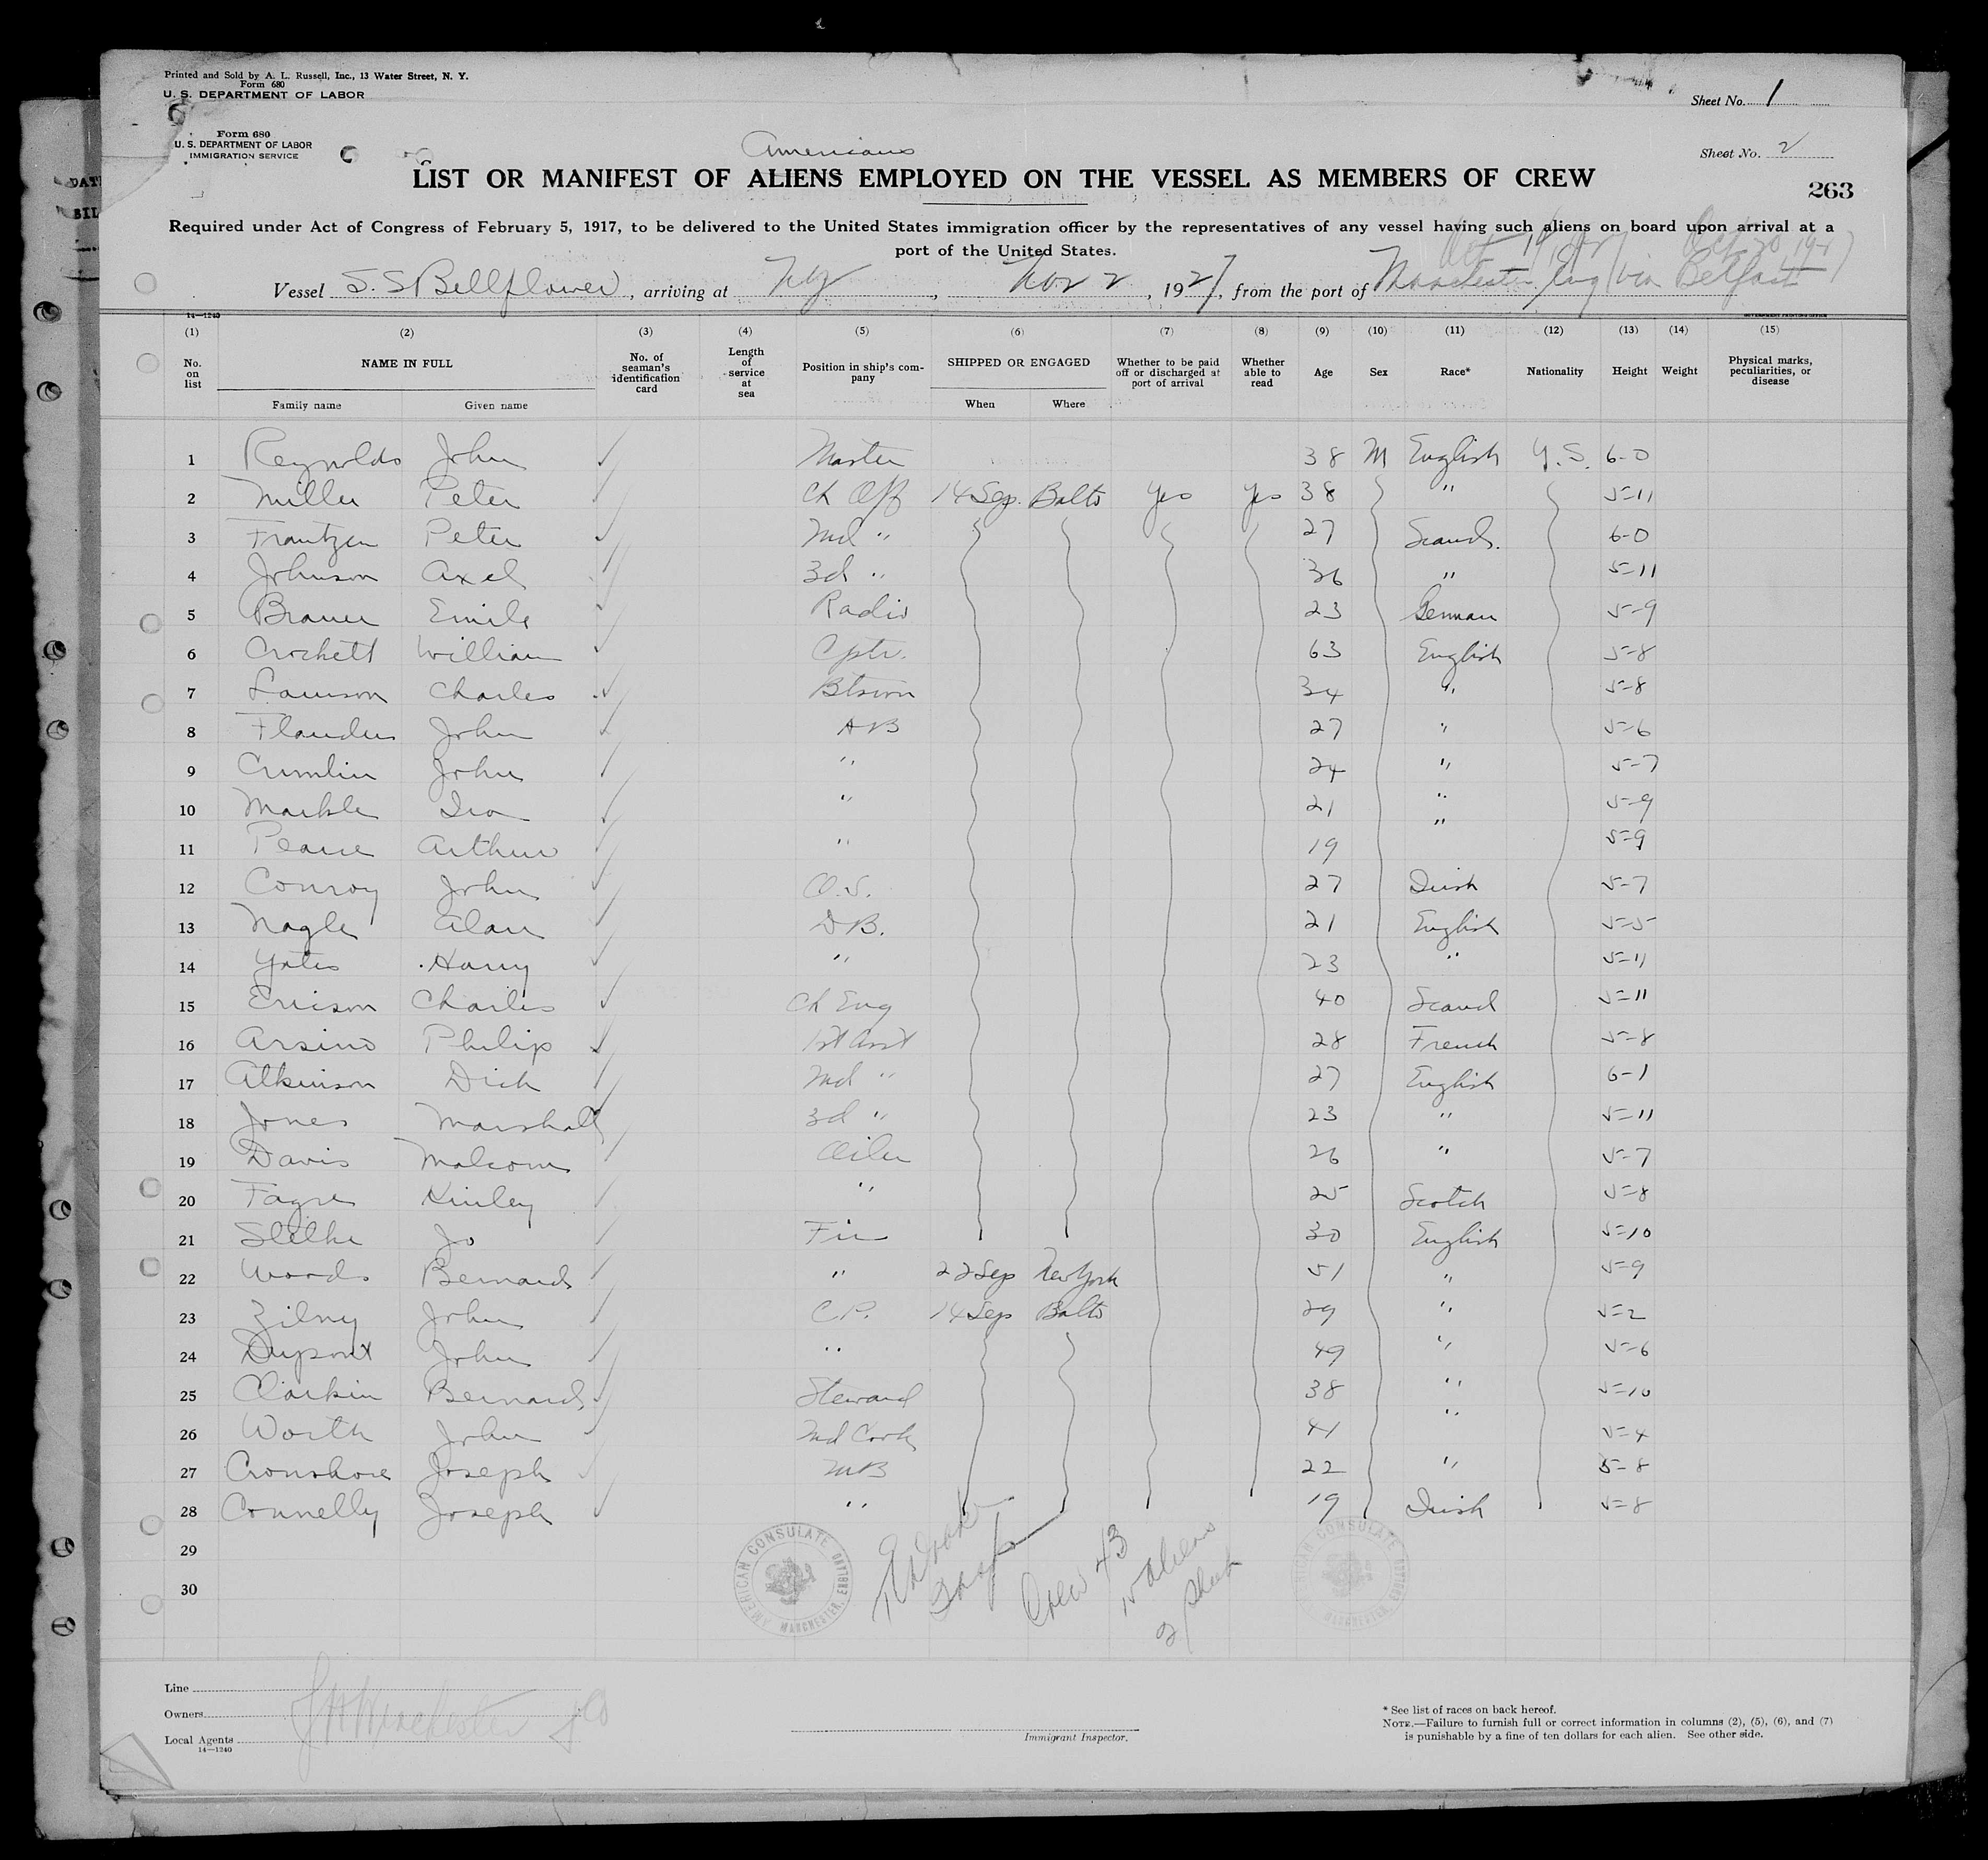 Printed and Sold by A. L. Russell, Inc., 13 Water Street, N. Y.
Form 680
U. S. DEPARTMENT OF LABOR
Sheet No. 1
Form 680
U. S. DEPARTMENT OF LABOR
IMMIGRATION SERVICE
Sheet No. 2
Americans
LIST OR MANIFEST OF ALIENS EMPLOYED ON THE VESSEL AS MEMBERS OF CREW
263
Required under Act of Congress of February 5, 1917, to be delivered to the United States immigration officer by the representatives of any vessel having such aliens on board upon arrival at a
port of the United States.
Vessel S.S Bellflower, arriving at NY, Nov 2, 1927, from the port of Manchester Eng via Belfast
14—1240
(1) (2) (3) (4) (5) (6) (7) (8) (9) (10) (11) (12) (13) (14) (15)
No. on list NAME IN FULL Family name Given name No. of seaman's identification card Length of service at sea Position in ship's company SHIPPED OR ENGAGED When Where Whether to be paid off or discharged at port of arrival Whether able to read Age Sex Race* Nationality Height Weight Physical marks, peculiarities, or disease
1 Reynolds John Master 38 M English U.S. 6-0
2 Miller Peter Ch Off 14 Sep. Balto Yes Yes 38 " 5-11
3 Frantzen Peter 2nd " 27 Scand. 6-0
4 Johnson Axel 3d " 36 " 5-11
5 Brauer Emile Radio 23 German 5-9
6 Crockett William Cptr. 63 English 5-8
7 Lawson Charles Btswn 34 " 5-8
8 Flanders John AB 27 " 5-6
9 Crumlin John " 24 " 5-7
10 Markle Ira " 21 " 5-9
11 Pearce Arthur " 19 " 5-9
12 Conroy John O.S. 27 Irish 5-7
13 Nagle Alan D B. 21 English 5-5
14 Yates Harry " 23 " 5-11
15 Ericson Charles Ch Eng 40 Scand 5-11
16 Arsino Philip 1st Asst 28 French 5-8
17 Atkinson Dick 2nd " 27 English 6-1
18 Jones Marshall 3d " 23 " 5-11
19 Davis Malcom Oiler 26 " 5-7
20 Fagre Kinley " 25 Scotch 5-8
21 Jo Fir 30 English 5-10
22 Woods Bernard " 22 Sep New York 51 " 5-9
23 Zilny John C.P. 14 Sep Balto 29 " 5-2
24 Dupont John " 49 " 5-6
25 Clarkin Bernard Steward 38 " 5-10
26 Worth John 2nd Cook 41 " 5-4
27 Cronshore Joseph MB 22 " 5-8
28 Connelly Joseph " 19 Irish 5-8
29
30
AMERICAN CONSULATE
MANCHESTER, ENGLAND
Crew 43
15 Aliens
2 Sheets
Line
Owners
Local Agents
J H Winchester & Co
14—1240
Immigrant Inspector.
* See list of races on back hereof.
NOTE.—Failure to furnish full or correct information in columns (2), (5), (6), and (7)
is punishable by a fine of ten dollars for each alien. See other side.